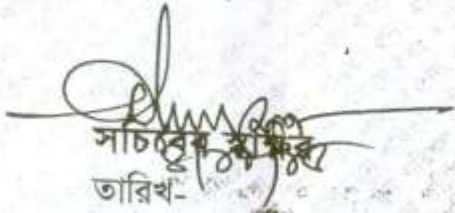 সচিবের স্বাক্ষর
তারিখ-